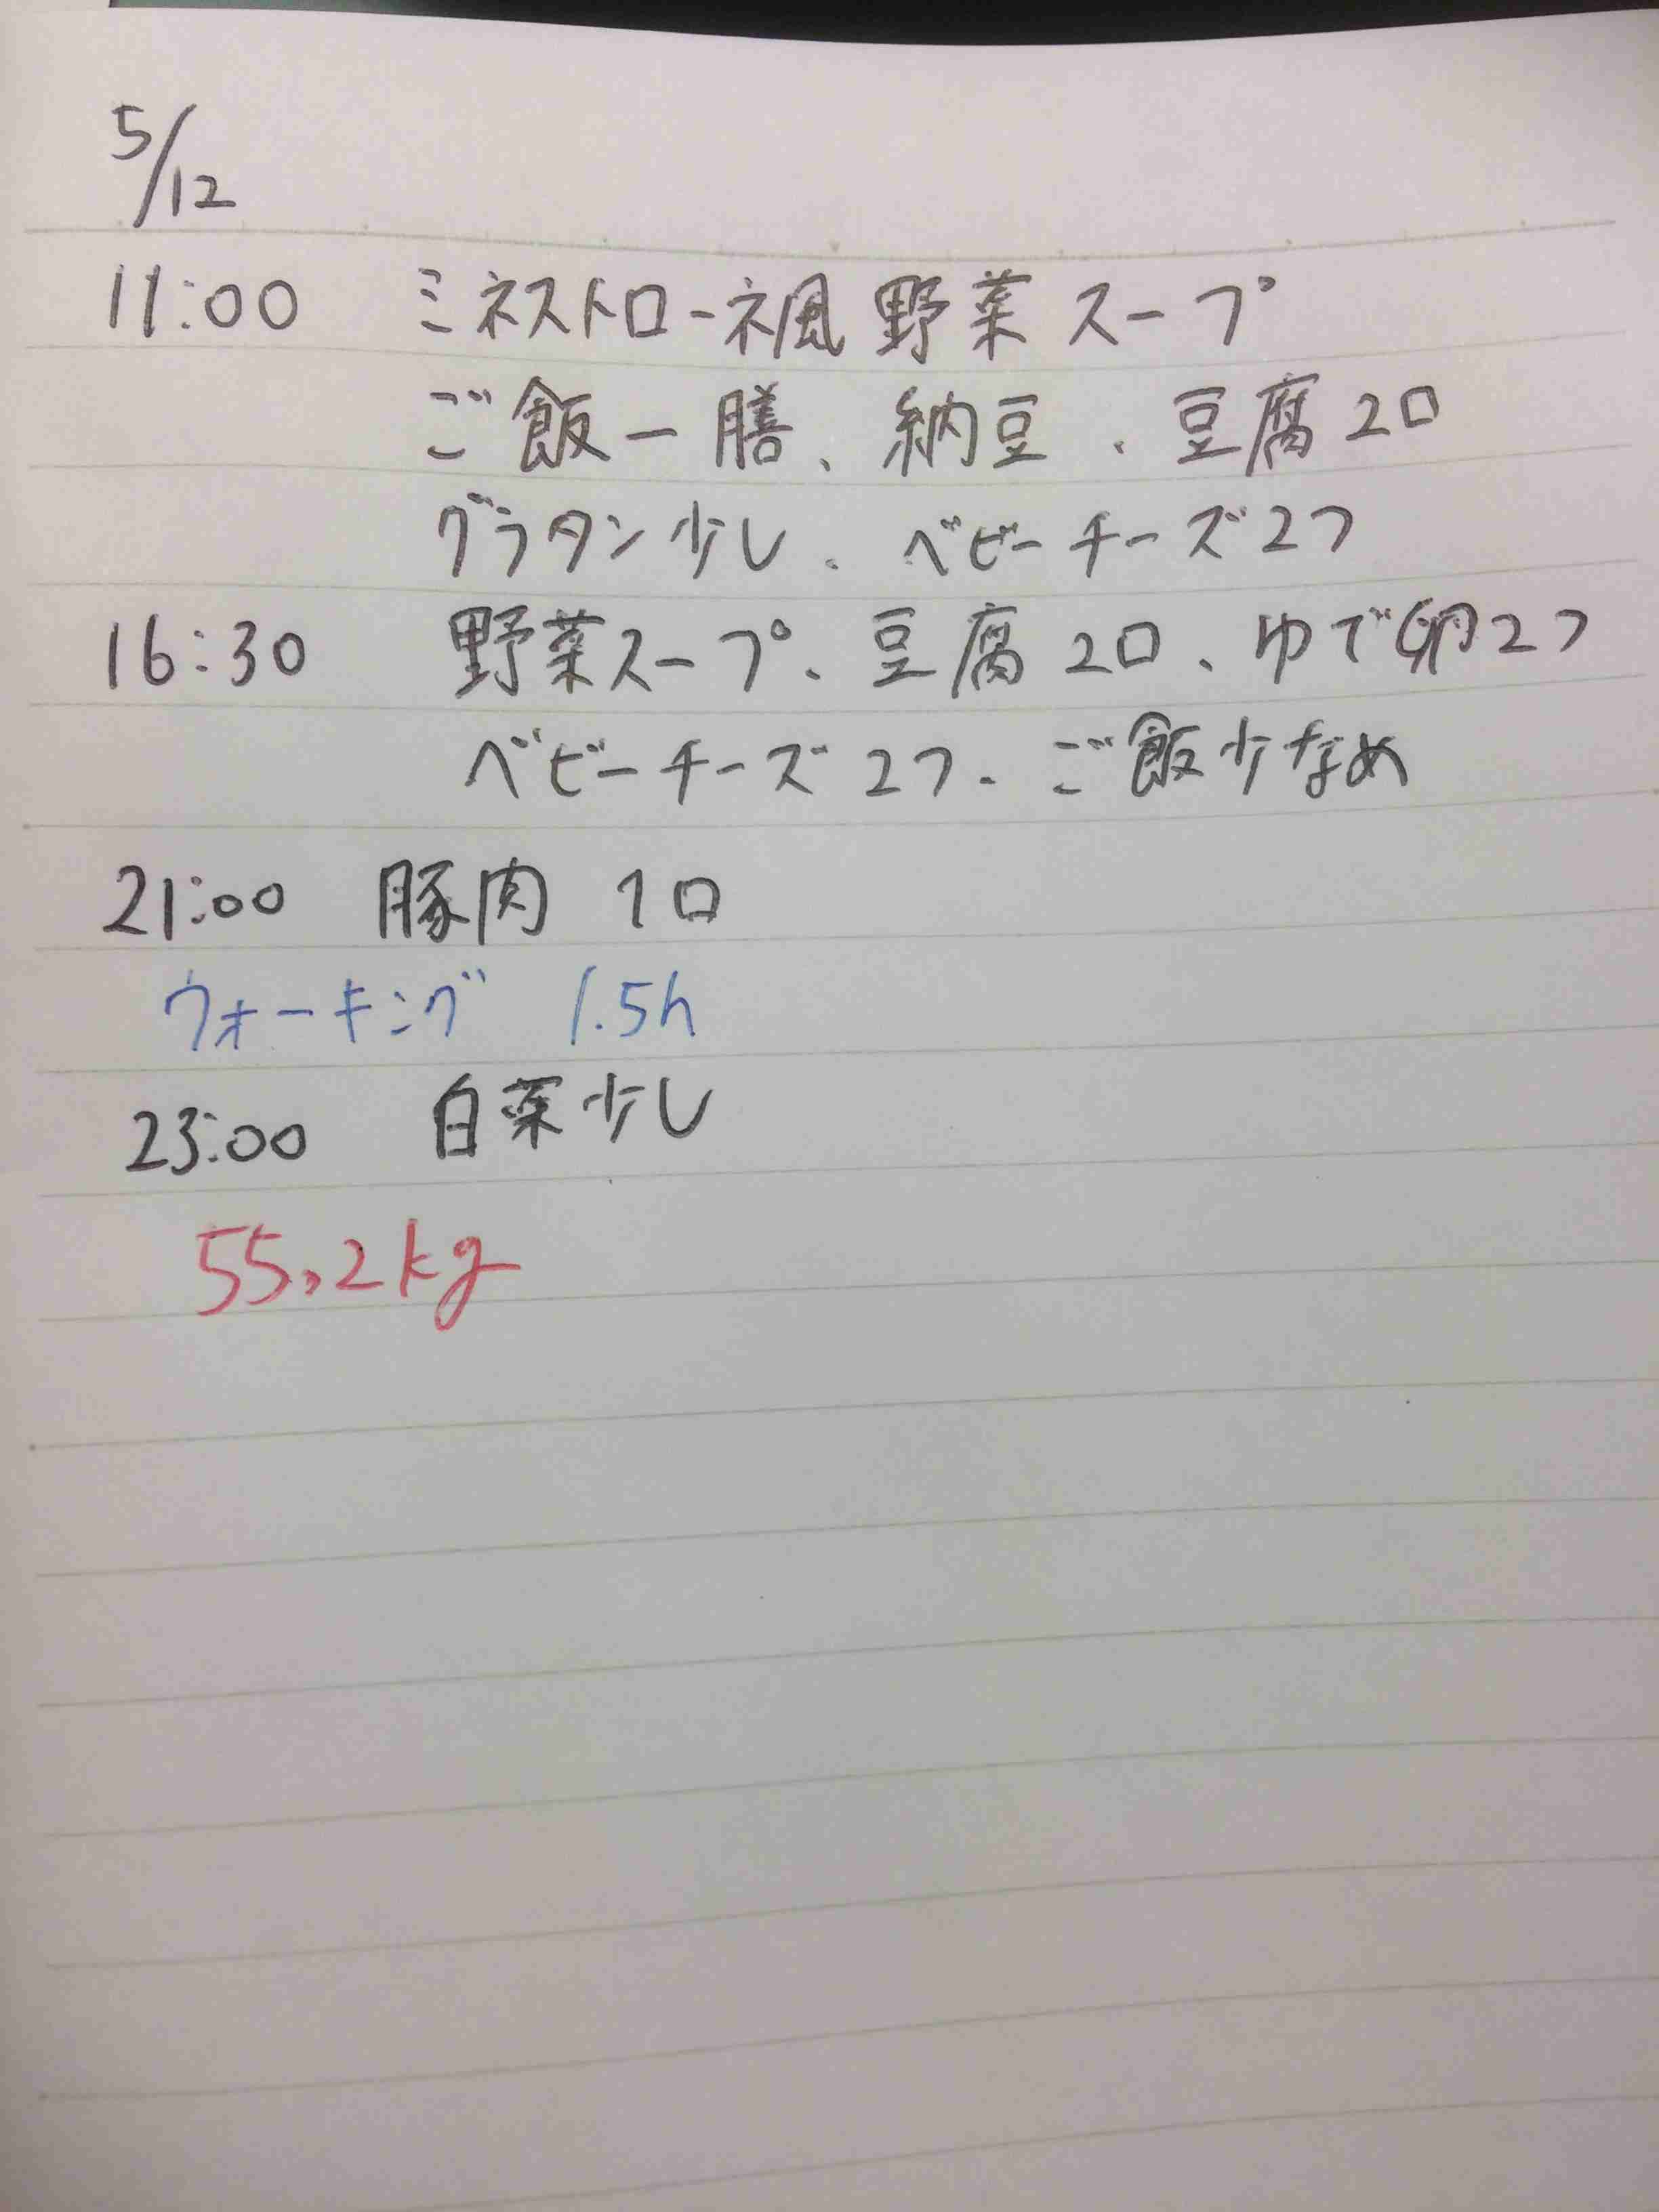 5/12
11:00 ミネストローネ風野菜スープ
ご飯一膳、納豆、豆腐2口
グラタン少し、ベビーチーズ2つ
16:30 野菜スープ、豆腐2口、ゆで卵2つ
ベビーチーズ2つ、ご飯少なめ
21:00 豚肉 1口
ウォーキング 1.5h
23:00 白菜少し
55.2kg